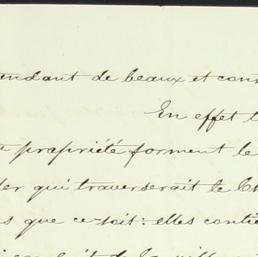 endant de beaux et cons
En effet l
propriété forment le
der qui traverserait le Ch
s que ce soit: elles contie